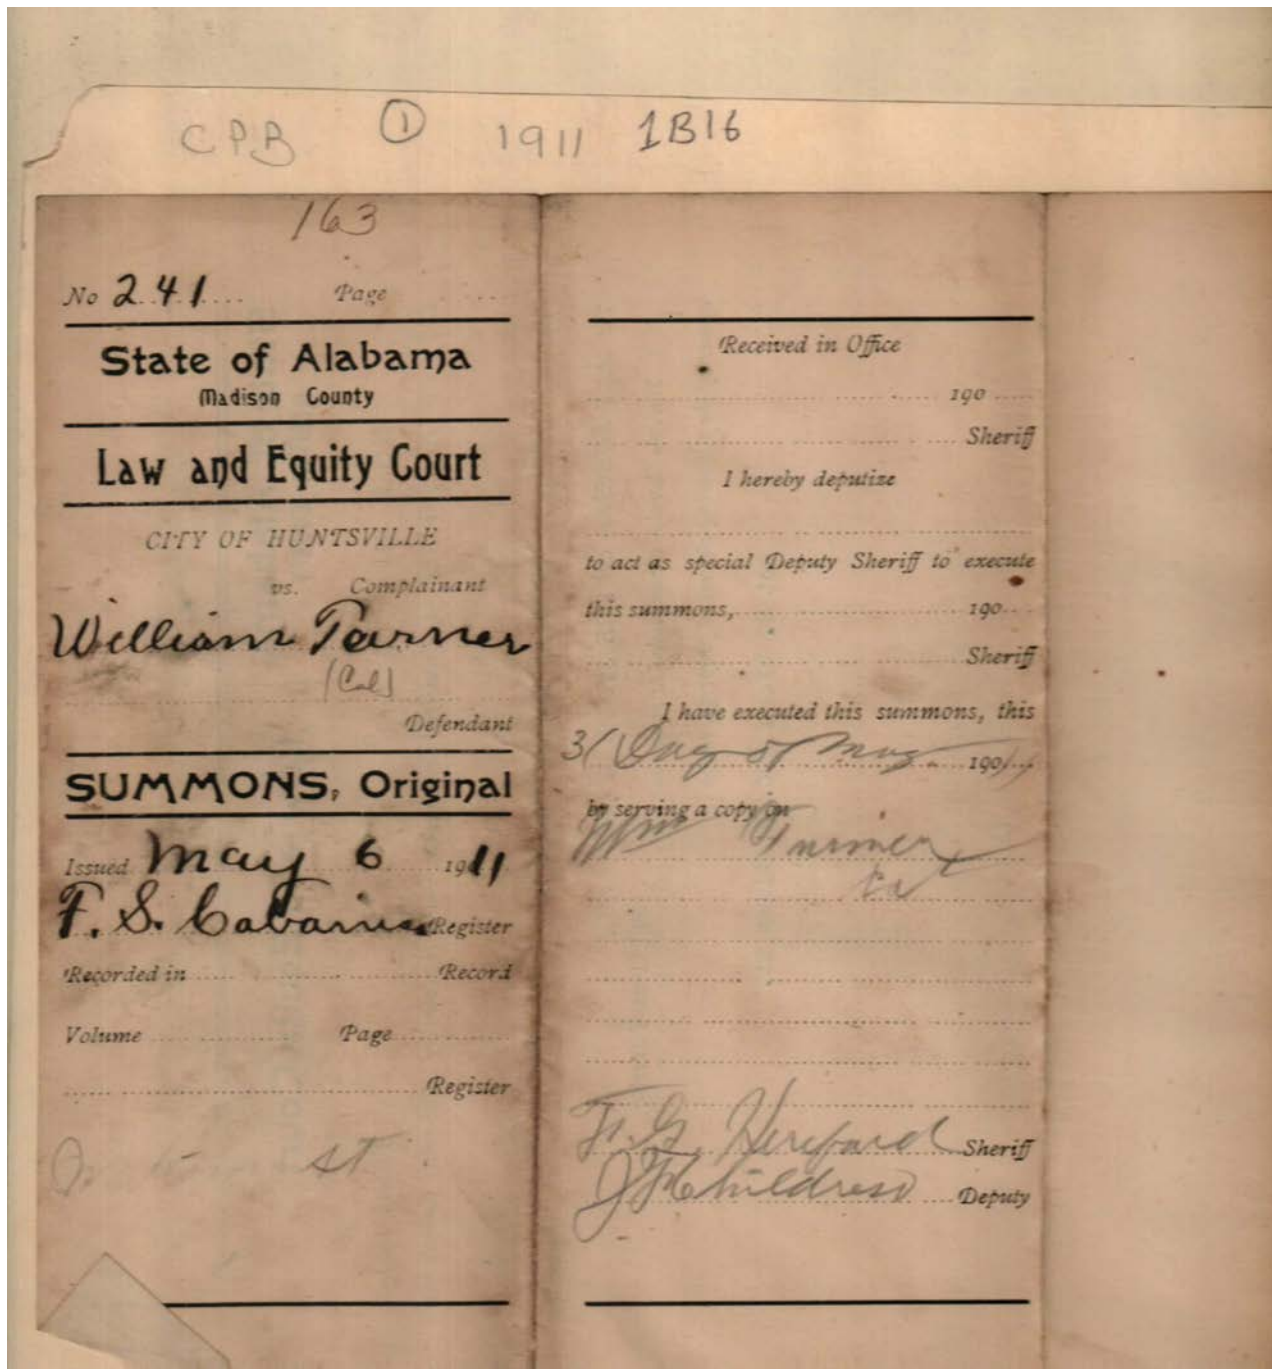 CPB 1 1911 1B16
163
No 241 Page
State of Alabama
Madison County
Law and Equity Court
CITY OF HUNTSVILLE
vs. Complainant
William Turner
(Col)
Defendant
SUMMONS, Original
Issued May 6 1911
F. S. Cabaniss Register
Recorded in Record
Volume Page
Register
st
Received in Office
190
Sheriff
I hereby deputize
to act as special Deputy Sheriff to execute
this summons, 190
Sheriff
I have executed this summons, this
31 Day of May 1901
by serving a copy on
Wm Turner
F. G. Hereford Sheriff
J F Childress Deputy